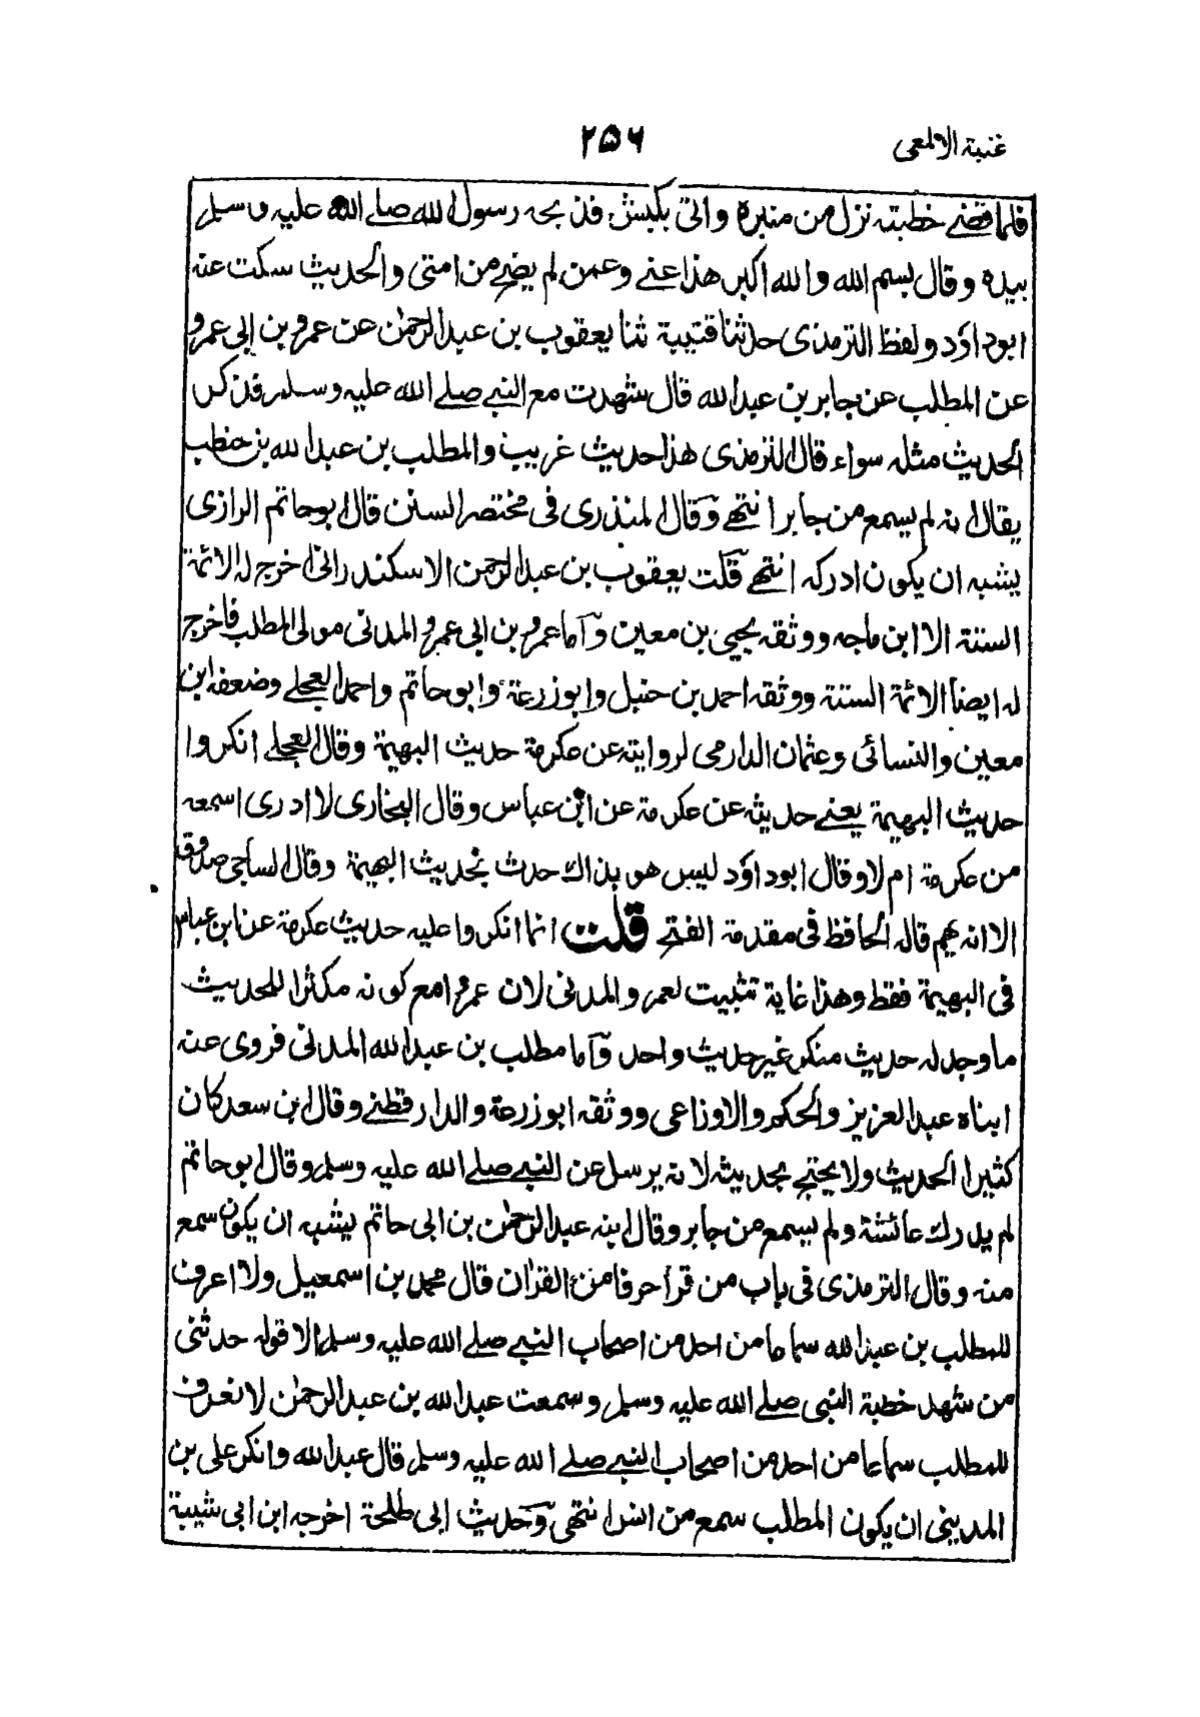 غنية الالمعى
۲۵۶
فلما قضے خطبته نزل من منبره واتى بكبش فذبحه رسول الله صلے الله عليه وسلم
بيده وقال بسم الله والله اكبر هذا عنے وعمن لم يضح من امتى والحديث سكت عنه
ابوداؤد ولفظ الترمذى حدثنا قتيبة ثنا يعقوب بن عبدالرحمٰن عن عمرو بن ابى عمرو
عن المطلب عن جابر بن عبدالله قال شهدت مع النبے صلے الله عليه وسلم فذكر
الحديث مثله سواء قال الترمذى هذا حديث غريب والمطلب بن عبدالله بن حنطب
يقال انه لم يسمع من جابر انتهے وقال المنذرى فى مختصر السنن قال ابوحاتم الرازى
يشبه ان يكون ادركه انتهے قلت يعقوب بن عبدالرحمن الاسكندرانى اخرج له الائمة
الستة الا ابن ماجه ووثقه يحيى بن معين واما عمرو بن ابى عمرو المدنى مولى المطلب فاخرج
له ايضا الائمة الستة ووثقه احمد بن حنبل وابوزرعة وابوحاتم واحمد العجلے وضعفه ابن
معين والنسائى وعثمان الدارمى لروايته عن عكرمة حديث البهيمة وقال العجلے انكروا
حديث البهيمة يعنے حديثه عن عكرمة عن ابن عباس وقال البخارى لا ادرى اسمعه
من عكرمة ام لا وقال ابوداؤد ليس هو بذاك حدث بحديث البهيمة وقال الساجى صدوق
الا انه يهم قاله الحافظ فى مقدمة الفتح قلت انما انكروا عليه حديث عكرمة عن ابن عباس
فى البهيمة فقط وهذا غاية تثبيت لعمرو المدنى لان عمرا مع كونه مكثرا للحديث
ما وجد له حديث منكر غير حديث واحد واما مطلب بن عبدالله المدنى فروى عنه
ابناه عبدالعزيز والحكم والاوزاعى ووثقه ابوزرعة والدارقطنے وقال ابن سعد كان
كثيرا الحديث ولا يحتج بحديثه لانه يرسل عن النبے صلے الله عليه وسلم وقال ابوحاتم
لم يدرك عائشة ولم يسمع من جابر وقال ابنه عبدالرحمٰن بن ابى حاتم يشبه ان يكون سمع
منه وقال الترمذى فى باب من قرأ حرفا من القرٰان قال محمد بن اسمعيل ولا اعرف
للمطلب بن عبدالله سماعا من احد من اصحاب النبے صلے الله عليه وسلم الا قوله حدثنى
من شهد خطبة النبى صلے الله عليه وسلم وسمعت عبدالله بن عبدالرحمٰن لا نعرف
للمطلب سماعا من احد من اصحاب النبے صلے الله عليه وسلم قال عبدالله وانكر على بن
المدينى ان يكون المطلب سمع من انس انتهى وحديث ابى طلحة اخرجه ابن ابى شيبة